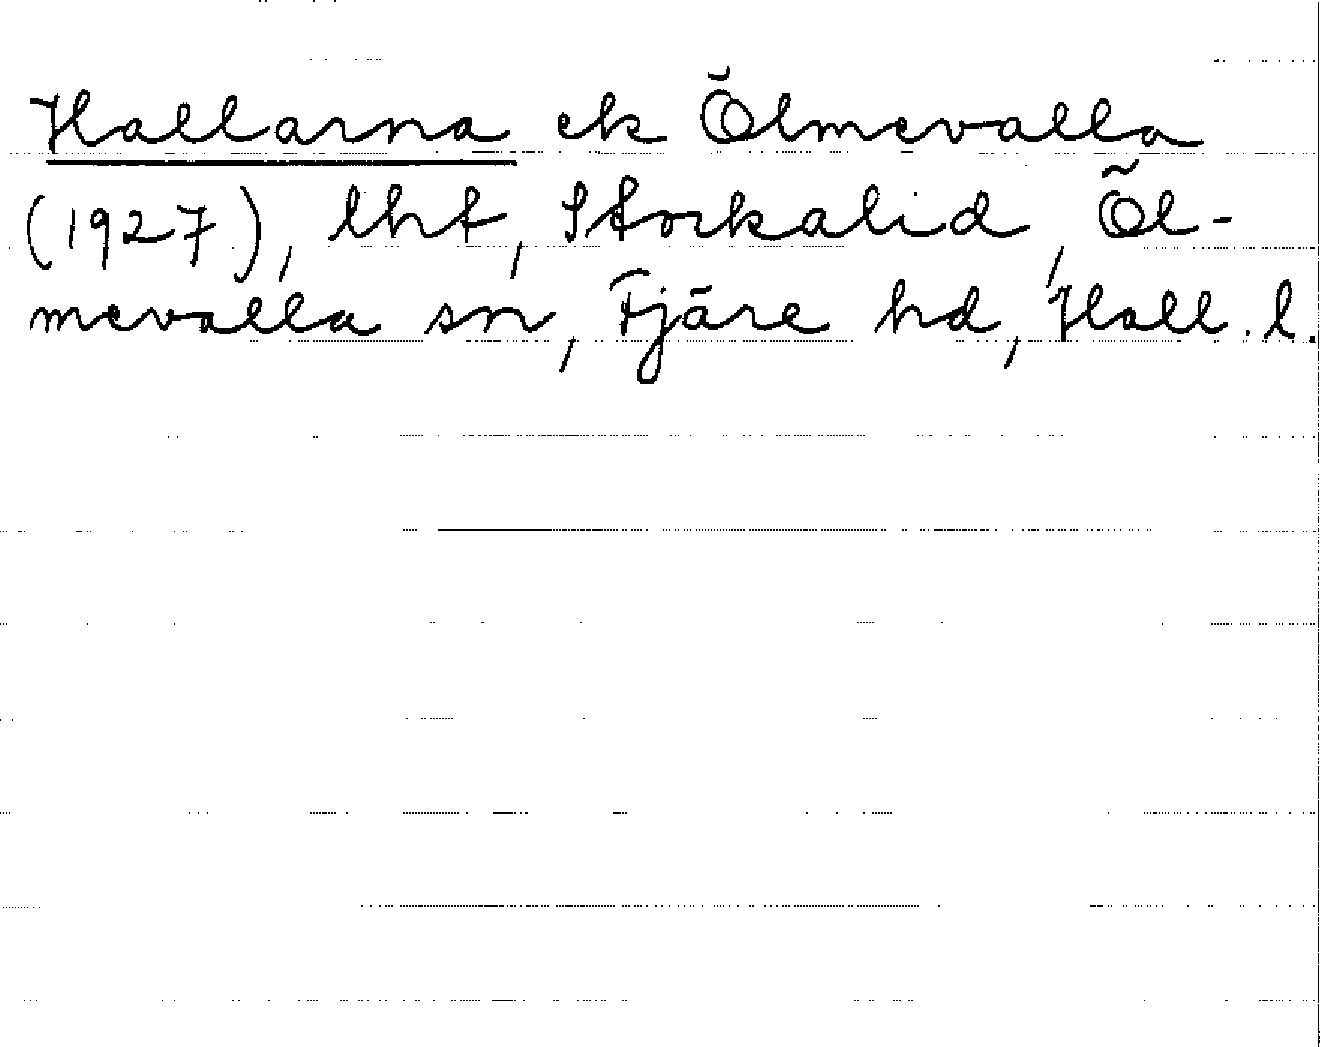 Hallarna ek Ölmevalla
(1927), lht, Storkalid, Öl-
mevalla sn, Fjäre hd, Hall. l.